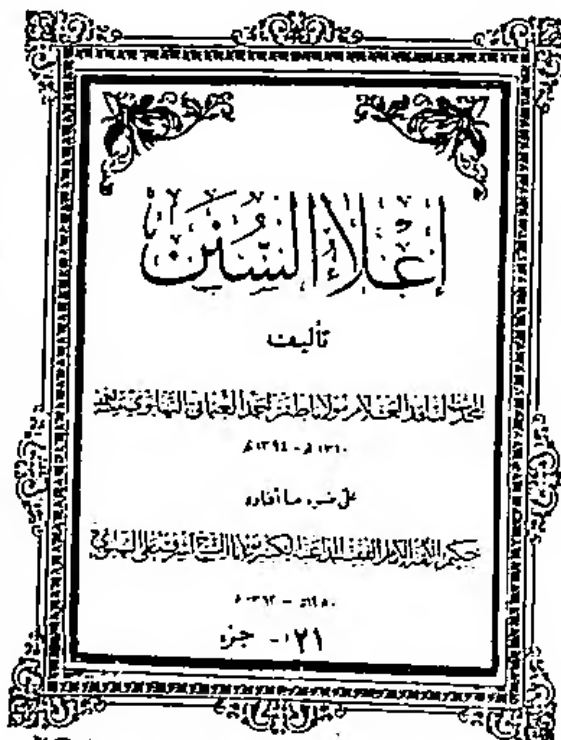 إعْلَاءُ السُّنَن
تأليف
المحدث الناقد العلامة مولانا ظفر أحمد العثماني التهانوي
١٣١٠ هـ - ١٣٩٤ هـ
على ضوء ما أفاده
حكيم الأمة الفقيه الداعية الكبير مولانا الشيخ أشرف علي التهانوي
١٢٨٠ هـ - ١٣٦٢ هـ
٢١ - جزء